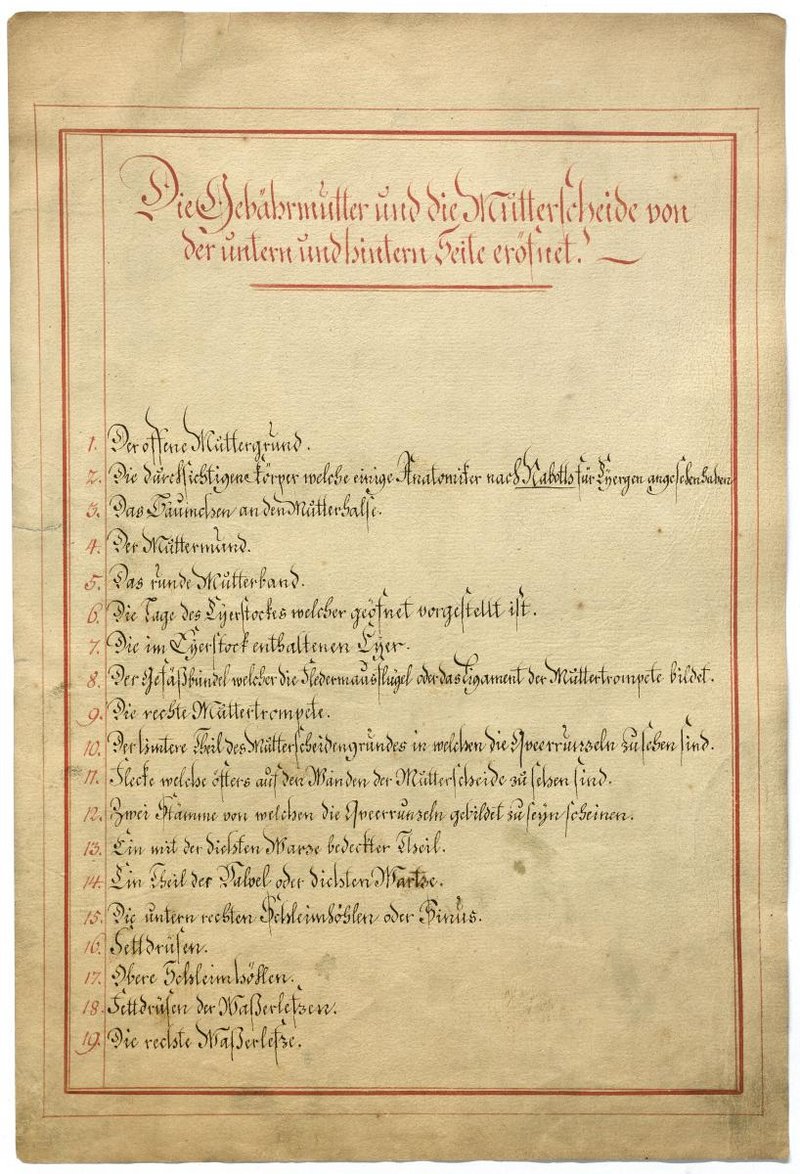 Die Gebährmutter und die Mutterscheide von
der untern und hintern Seite eröfnet.
1. Der offene Muttergrund.
2. Die durchsichtigen Körper welche einige Anatomiker nach Naboth für Eyergen angesehen haben
3. Das Bäumchen an den Mutterhalse.
4. Der Muttermund.
5. Das runde Mutterband.
6. Die Lage des Eyerstockes welcher geöfnet vorgestellt ist.
7. Die im Eyerstock enthaltenen Eyer.
8. Der Gefäßbündel welcher die Fledermausflügel oder das Ligament der Muttertrompete bildet.
9. Die rechte Muttertrompete.
10. Der hintere Theil des Mutterscheidengrundes in welchen die Qveerrunzeln zu sehen sind.
11. Flecke welche öfters auf den Wänden der Mutterscheide zu sehen sind.
12. Zwei Stämme von welchen die Qveerrunzeln gebildet zu seyn scheinen.
13. Ein mit der dichten Warze bedeckter Theil.
14. Ein Theil der Valvel oder dichten Wartze.
15. Die untern rechten Schleimhöhlen oder Sinus.
16. Fettdrüsen.
17. Obere Schleimhöhlen.
18. Fettdrüsen der Waßerlefzen.
19. Die rechte Waßerlefze.